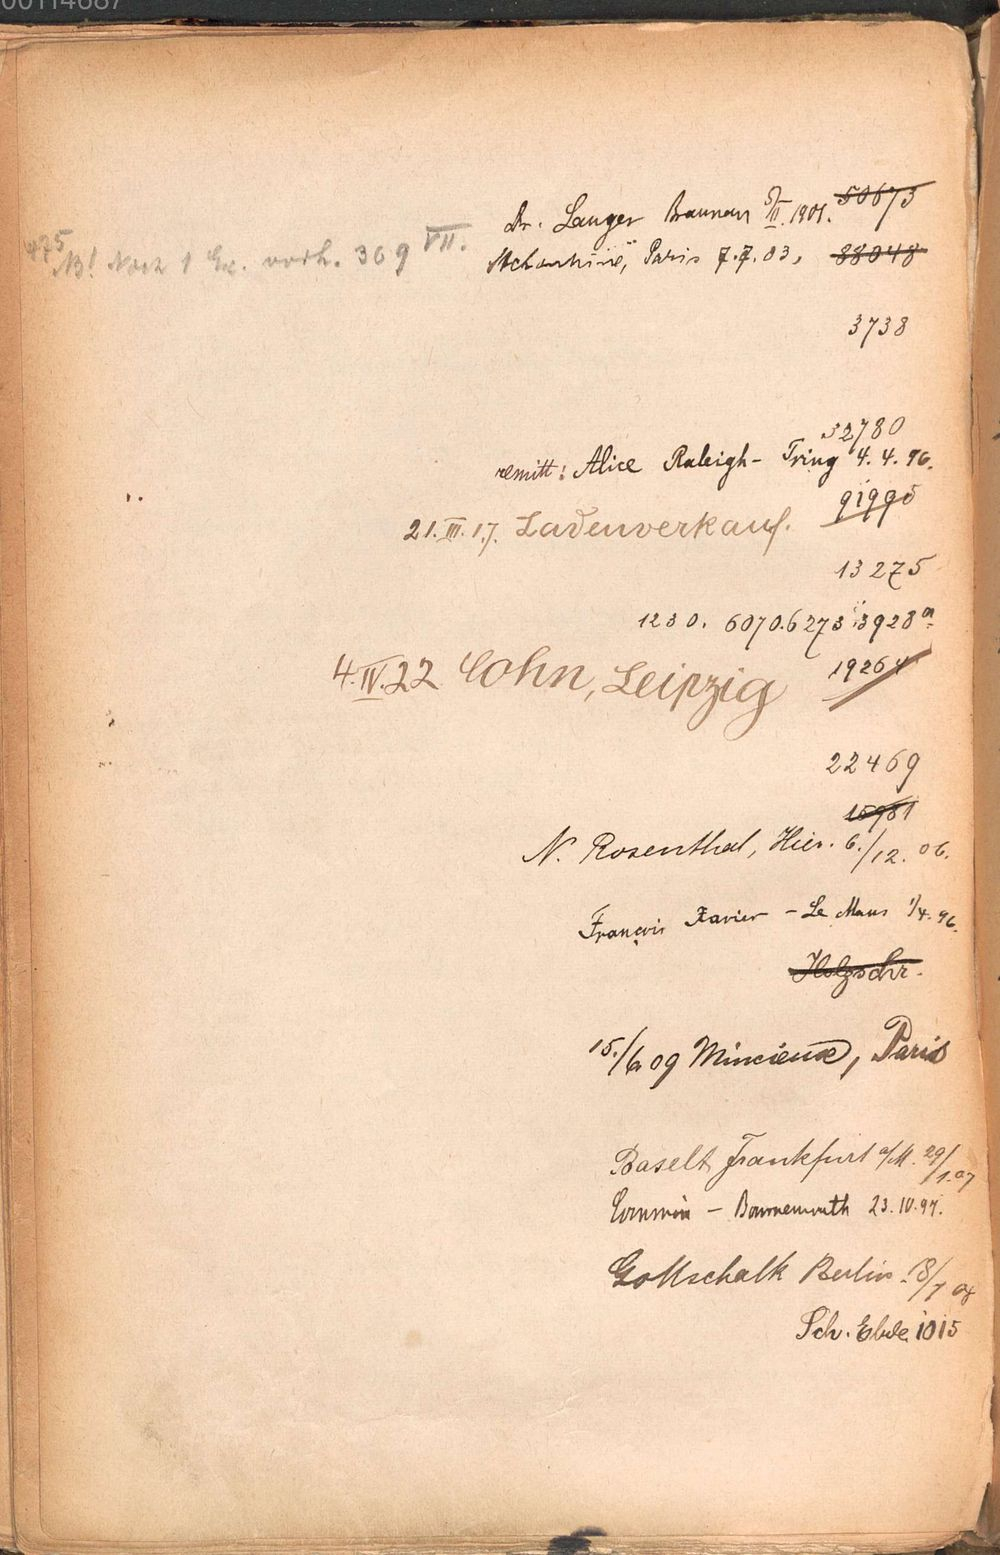 00114687
Dr. Langer Braunau 5/II. 1901. 50673
475
NB! Noch 1 Ex. vorh. 369 VII.
Paris 7.7.03, 88048
3738
32780
remitt: Alice Raleigh - Tring 4.4.96.
91995
21.III.17. Ladenverkauf.
13275
1230. 6070. 6273 3928a
19264
4.IV.22 Cohn, Leipzig
22469
15981
N. Rosenthal, Hier. 6./12. 06.
François Xavier - Le Mans 1/4.96.
Holzschr.
15./6 09 Mincieux, Paris
Baselt, Frankfurt a/M. 29/1.07
- Bournemouth 23.10.97.
Gottschalk Berlin 18/7 08
Sch. Ebde. 1015